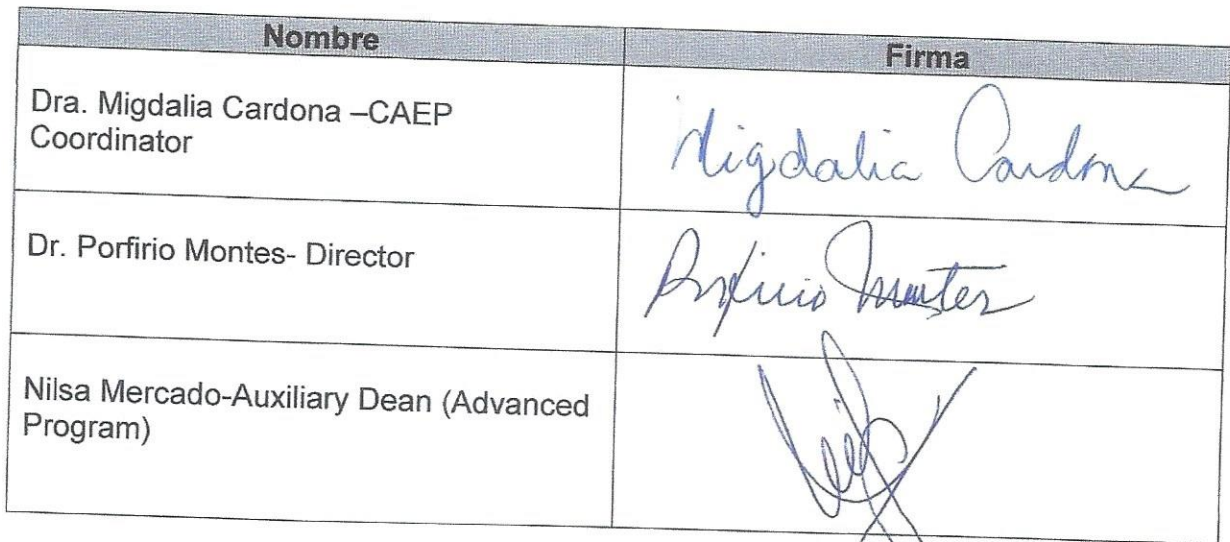 Nombre
Firma
Dra. Migdalia Cardona –CAEP
Coordinator
Migdalia Cardona
Dr. Porfirio Montes- Director
Porfirio Montes
Nilsa Mercado-Auxiliary Dean (Advanced
Program)